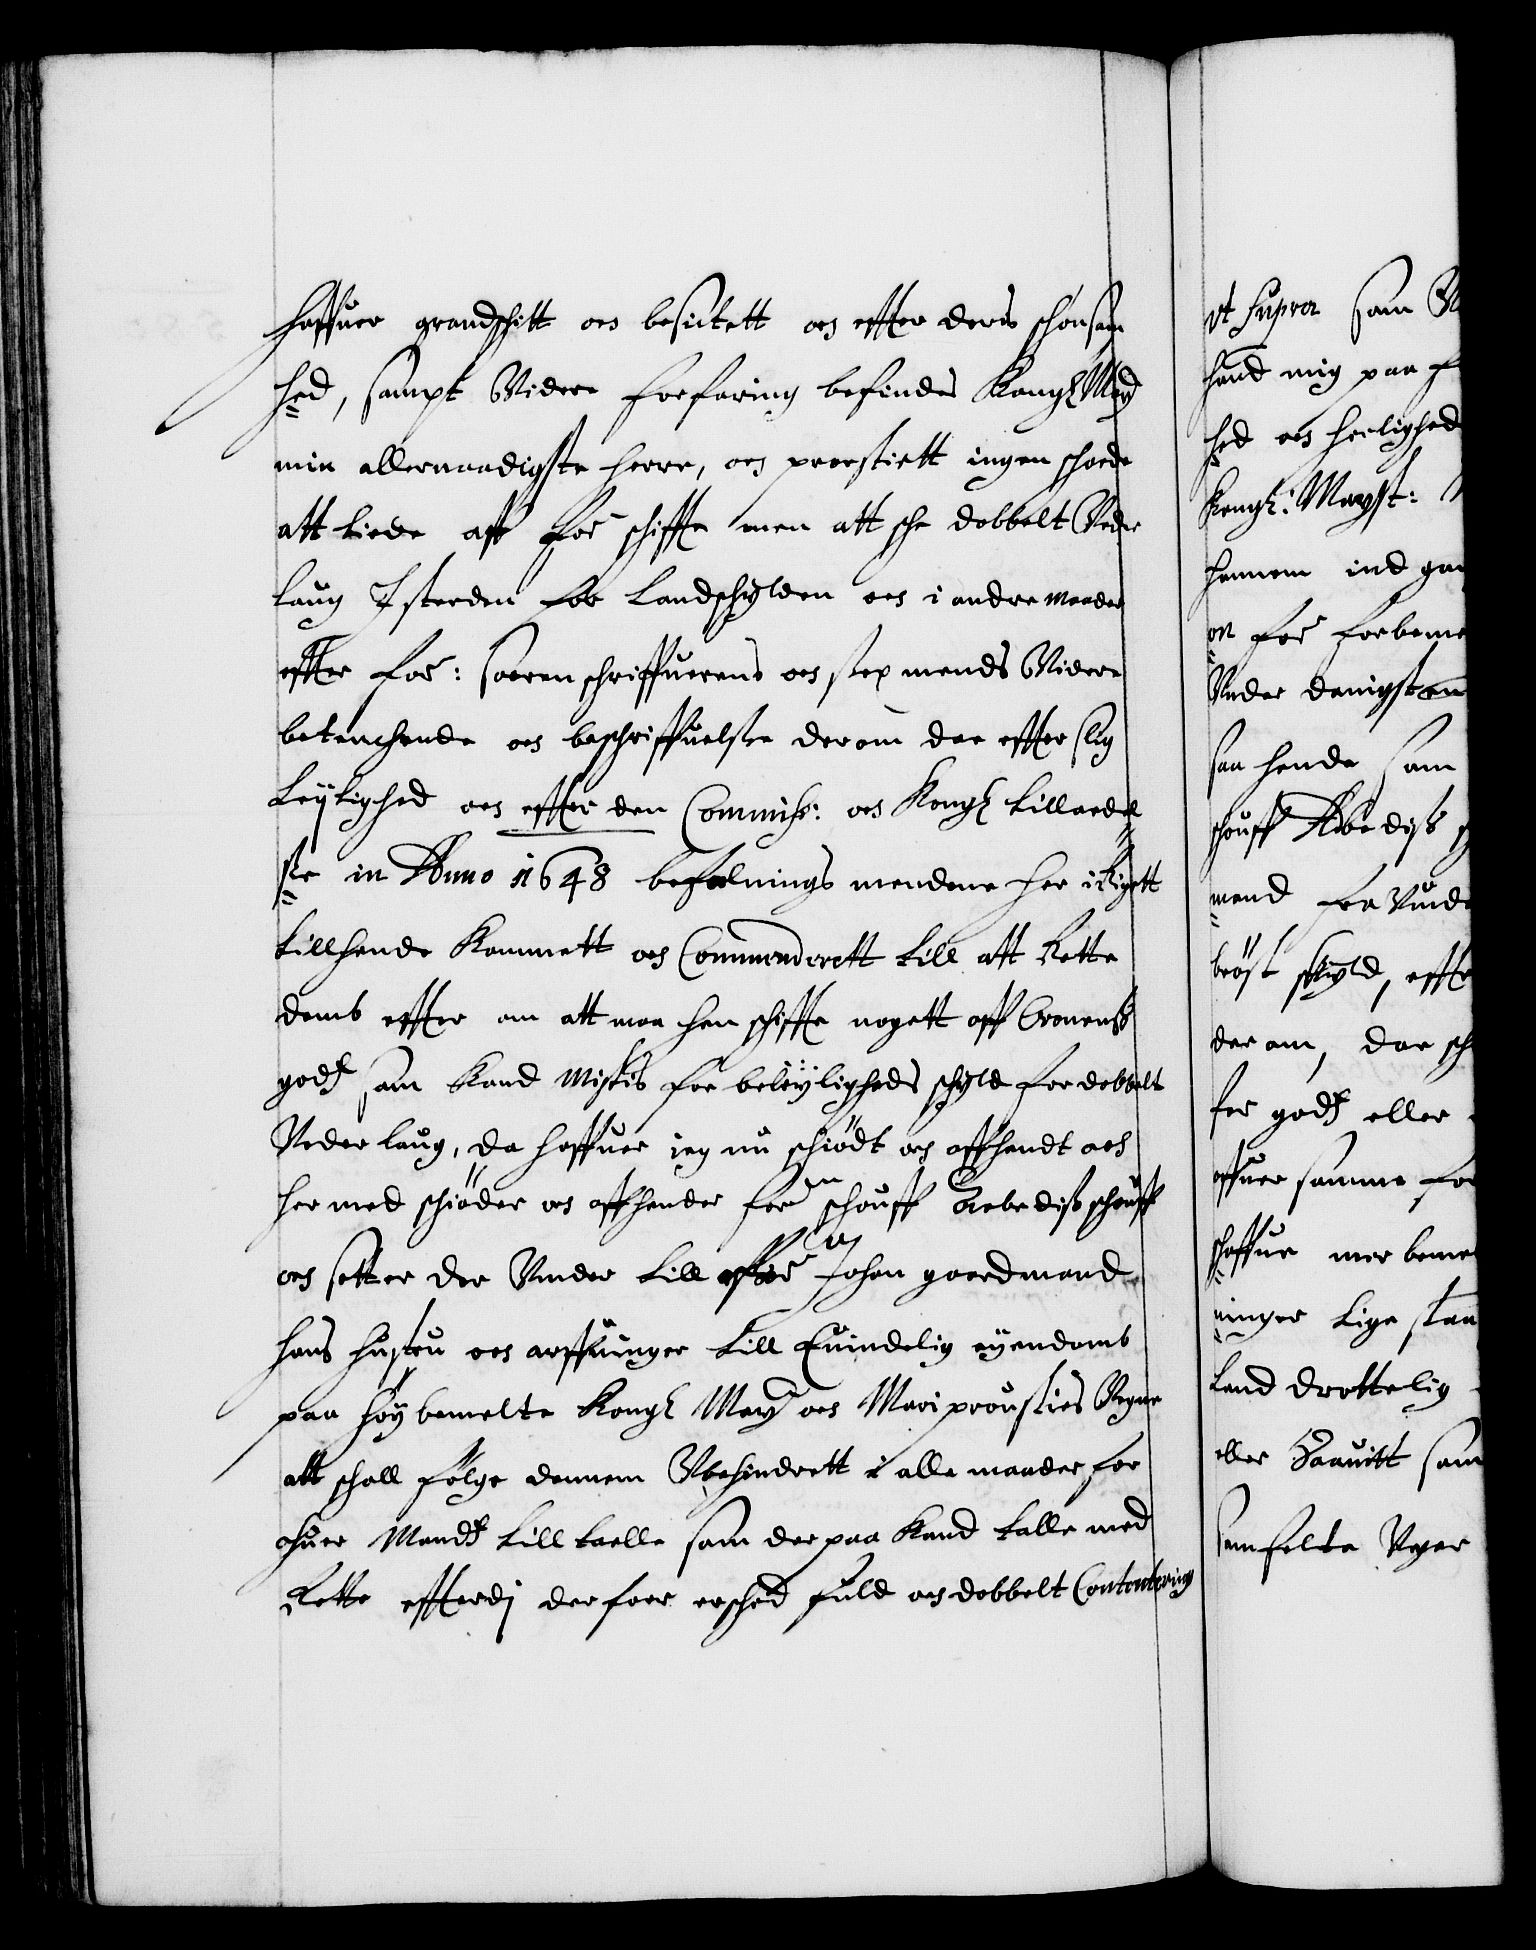 haffuer grandschitt oc besictett oc effter deris schiønsom
hed, sampt Videre forfaring befindes Kongl May
min allernaadigste herre, oc proestiett ingen schade
att liede aff for schiffte men att sche dobbelt Veder
laug I steeden for Landschylden oc i andre maader
effter for: soeren schriffuerens oc sex mends Videre
betenchende oc beschriffuelße derom der effter slig
Leÿlighed oc effter den Commiss: oc Kongl tillaedel
ße in Anno 1648 befalnings mendene her i Rigett
tillhende Kommett oc Commenderett till att Rette
dem effter om att maa hen schiffte nogett aff Cronenß
godß som Kand Mistis for beleÿligheds schyld for dobbelt
Vederlaug, da haffuer ieg nu schiødt oc affhendt och
her med schiøder oc affhender for schouff Aebediß schouff
oc setter der Vnder till Johan gaardmand
hans hustru oc arffuinger till Euindelig eÿendomb
paa høÿbemelte Kongl May oc Mariprousties Vegne
att schall følge dennem Vbehindrett i alle maader for
huer Mandß till taelle som der paa Kand talle med
Rette effterdj der foer er sched fuld oc dobbelt Contentering
vt supra som
hand mig paa
hed oc herlighed
Kongl: Mayst:
hannem ind
for forbeme
Vnder danigsten
saa hende som
schouff Abediß
mand fra Vind
brøst schyld, effte
der om, der sch
for godß eller
offuer samme for
schoffue mer beme
ninger Lige staa
Land drottelig
eller Saauitt som
som felte Veyer